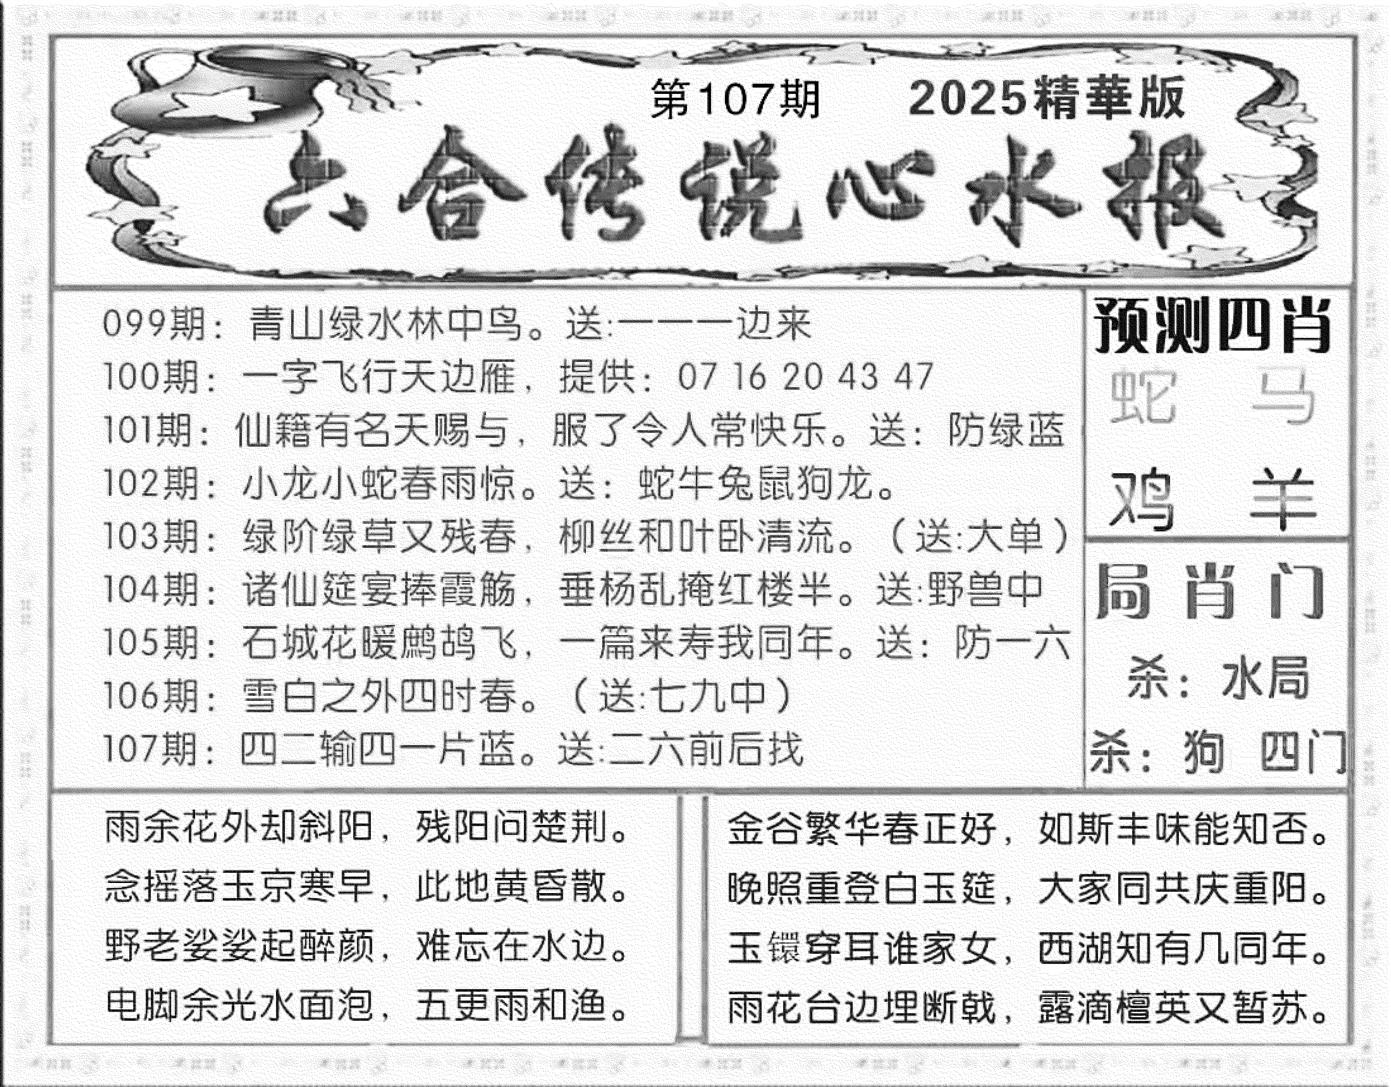 第107期 2025精華版
六合传说心水报
099期：青山绿水林中鸟。送:一一一边来
100期：一字飞行天边雁，提供：07 16 20 43 47
101期：仙籍有名天赐与，服了令人常快乐。送：防绿蓝
102期：小龙小蛇春雨惊。送：蛇牛兔鼠狗龙。
103期：绿阶绿草又残春，柳丝和叶卧清流。（送:大单）
104期：诸仙筵宴捧霞觞，垂杨乱掩红楼半。送:野兽中
105期：石城花暖鹧鸪飞，一篇来寿我同年。送：防一六
106期：雪白之外四时春。（送:七九中）
107期：四二输四一片蓝。送:二六前后找
预测四肖
蛇 马
鸡 羊
局肖门
杀：水局
杀：狗 四门
雨余花外却斜阳，残阳问楚荆。
念摇落玉京寒早，此地黄昏散。
野老娑娑起醉颜，难忘在水边。
电脚余光水面泡，五更雨和渔。
金谷繁华春正好，如斯丰味能知否。
晚照重登白玉筵，大家同共庆重阳。
玉镮穿耳谁家女，西湖知有几同年。
雨花台边埋断戟，露滴檀英又暂苏。